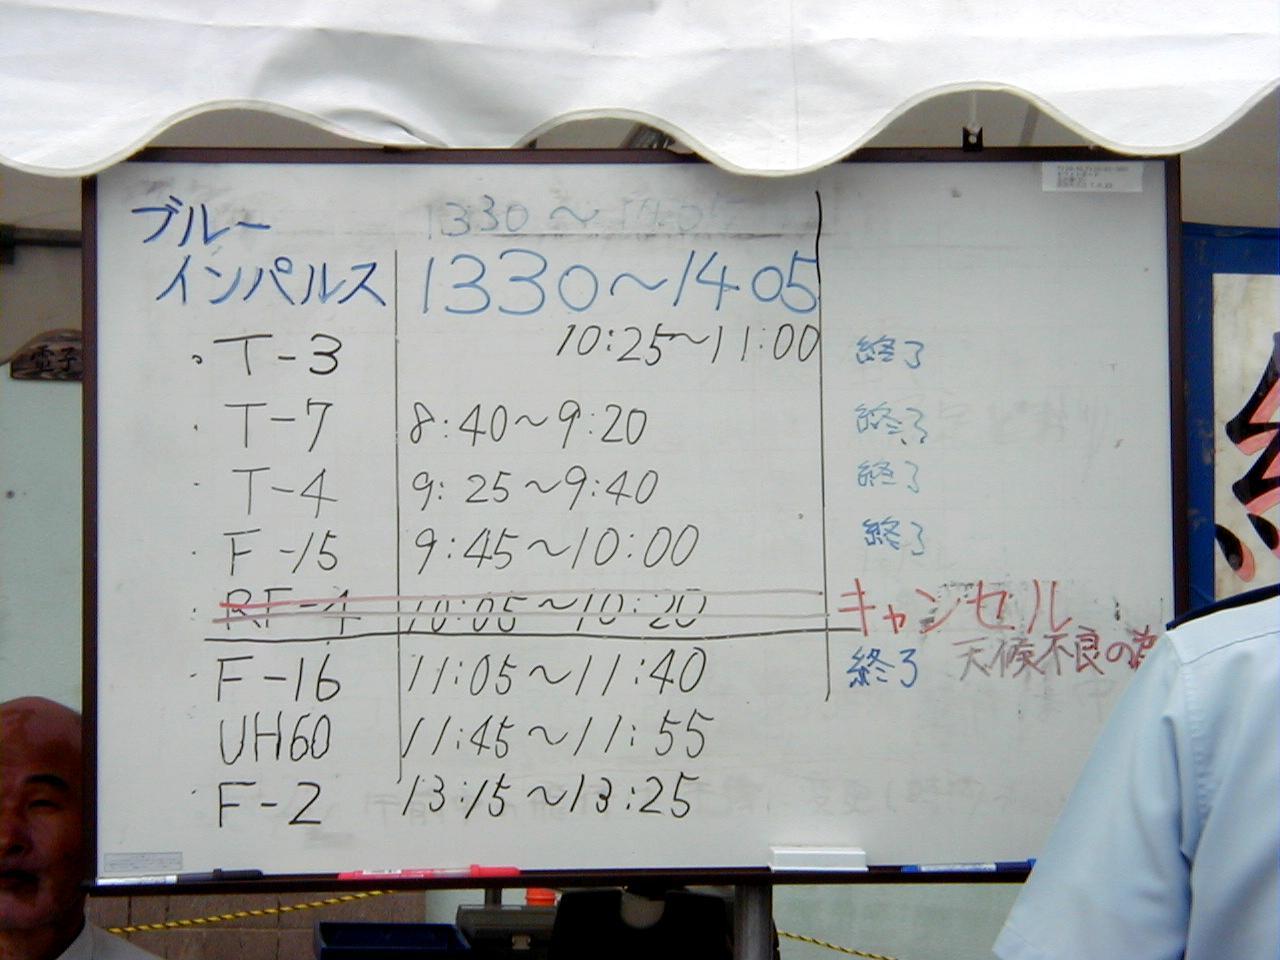 ブルー
インパルス 1330～1405
1330～1405
T-3 10:25～11:00 終了
T-7 8:40～9:20 終了
T-4 9:25～9:40 終了
F-15 9:45～10:00 終了
RF-4 10:05～10:20 キャンセル
天候不良の為
F-16 11:05～11:40 終了
UH60 11:45～11:55
F-2 13:15～13:25
電子